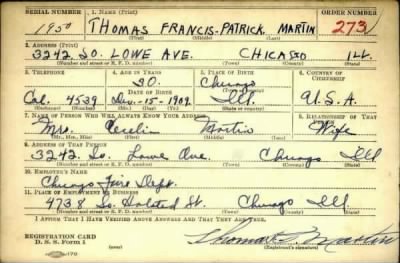 SERIAL NUMBER 1. NAME (Print) ORDER NUMBER
1950 THOMAS FRANCIS-PATRICK. MARTIN 273
(First) (Middle) (Last)
2. ADDRESS (Print)
3242 SO. LOWE AVE. CHICAGO ILL.
(Number and street or R. F. D. number) (Town) (County) (State)
3. TELEPHONE 4. AGE IN YEARS 5. PLACE OF BIRTH 6. COUNTRY OF CITIZENSHIP
30. Chicago
DATE OF BIRTH (Town or county)
Cal. 4539 Dec.-15-1909. Ill. U.S.A.
(Exchange) (Number) (Mo.) (Day) (Yr.) (State or country)
7. NAME OF PERSON WHO WILL ALWAYS KNOW YOUR ADDRESS 8. RELATIONSHIP OF THAT PERSON
Mrs. Martin Wife
(Mr., Mrs., Miss) (First) (Middle) (Last)
9. ADDRESS OF THAT PERSON
3242 So. Lowe Ave. Chicago Ill
(Number and street or R. F. D. number) (Town) (County) (State)
10. EMPLOYER'S NAME
Chicago Fire Dept.
11. PLACE OF EMPLOYMENT OR BUSINESS
4738 So. Halsted St. Chicago Ill.
(Number and street or R. F. D. number) (Town) (County) (State)
I AFFIRM THAT I HAVE VERIFIED ABOVE ANSWERS AND THAT THEY ARE TRUE.
REGISTRATION CARD
D. S. S. Form 1 Thomas F. Martin
(over) (Registrant's signature)